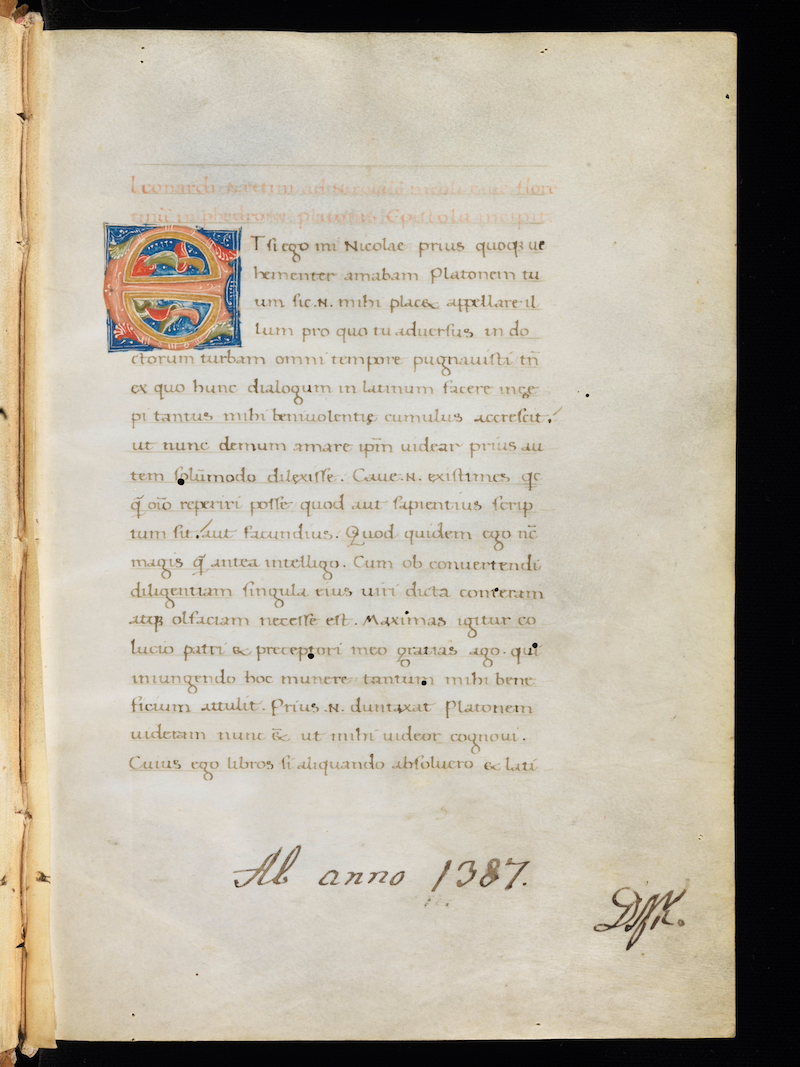 Leonardi Aretini ad
platonis Epistola incipit
ETsi ego mi Nicolae prius quoqꝫ ue
hementer amabam Platonem tu
um sic .N. mihi placet appellare il
lum pro quo tu aduersus in do
ctorum turbam omni tempore pugnauisti tn̄
ex quo hunc dialogum in latinum facere incę
pi tantus mihi beniuolentię cumulus accrescit.
ut nunc demum amare ip̄m uidear prius au
tem solūmodo dilexisse. Caue .N. existimes
q̄ oīo reperiri posse quod aut sapientius scrip
tum sit. aut facundius. Quod quidem ego nc̄
magis q̄ antea intelligo. Cum ob conuertendi
diligentiam singula eius uiri dicta conteram
atqꝫ olfaciam necesse est. Maximas igitur co
lucio patri & preceptori meo gratias ago. qui
iniungendo hoc munere tantum mihi bene
ficium attulit. Prius .N. duntaxat Platonem
uideram nunc & ut mihi uideor cognoui.
Cuius ego libros si aliquando absoluero & lati
Ab anno 1387.